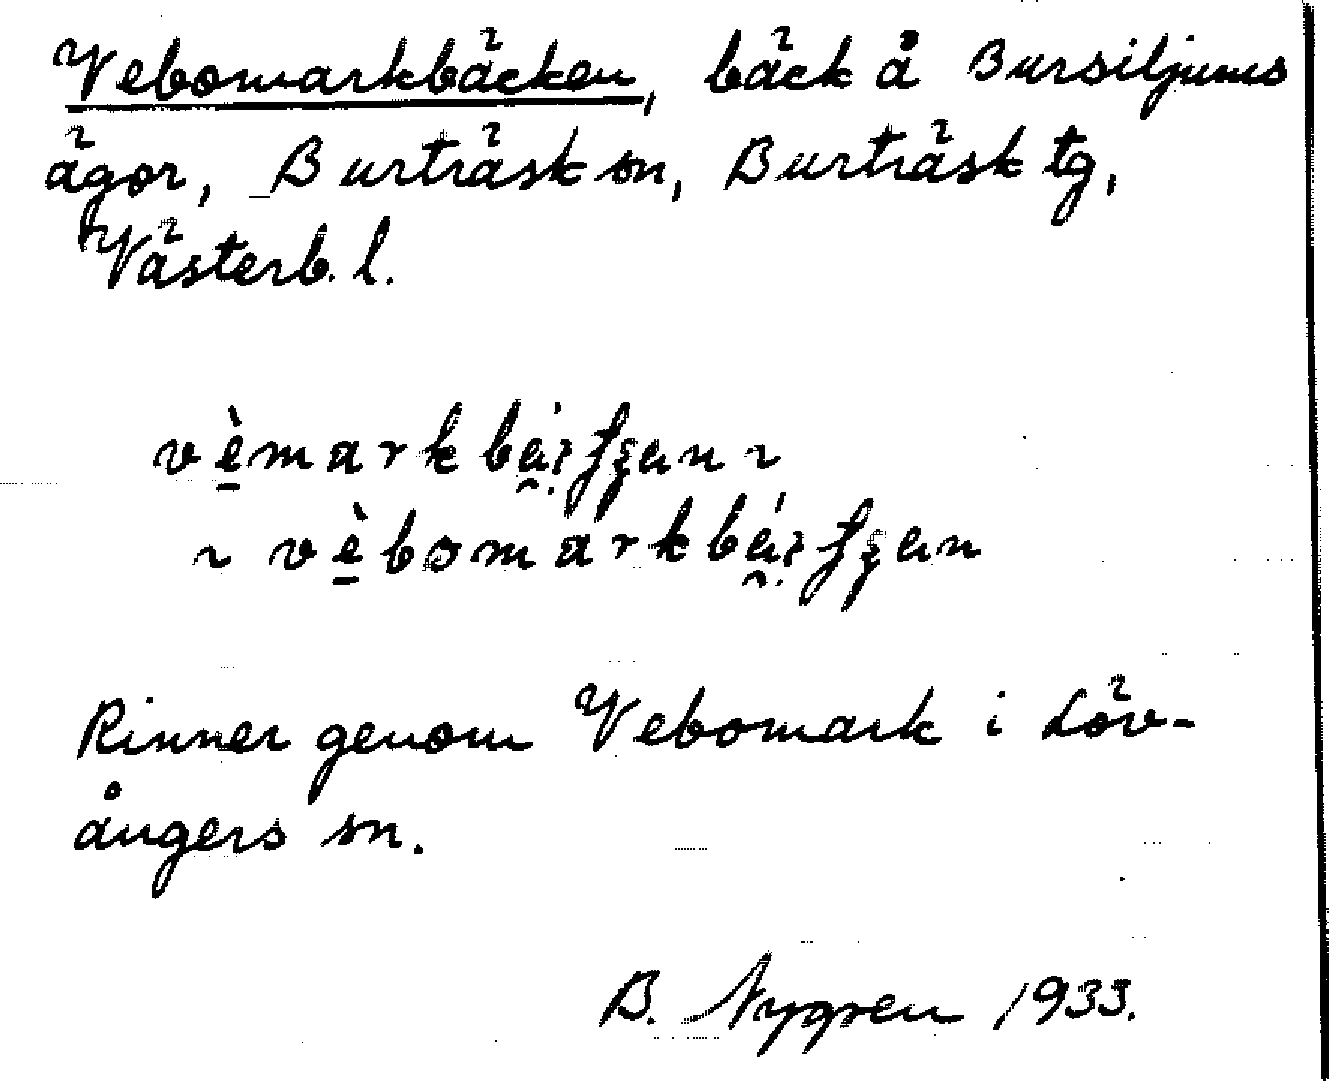 Vebomarkbäcken, bäck å Bursiljums
ägor, Burträsk sn, Burträsk tg,
Västerb. l.
Rinner genom Vebomark i Löv-
ångers sn.
B. Nygren 1933.